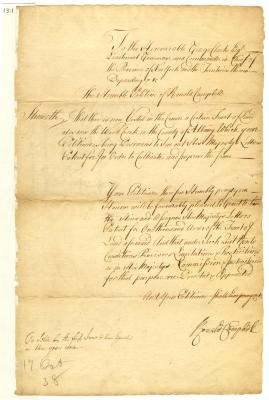 To the Honourable George Clarke Esqr
Lieutenant Governour and Commander in Chief of
the Province of New York and the Territories thereon
Depending &c
The Humble Petition of Ronald Campbell
Sheweth
That there is now Vested in the Crown a Certain Tract of Land
at or near the Wood Creek in the County of Albany Which your
Petitioner being Desirous to have his Majesty's Letters
Patent for In Order to Cultivate and Improve the same
Your Petitioner therefore Humbly prays your
Honour will be favourably pleased to Grant to
his Heirs and Assigns his Majesty's Letters
Patent for One Thousand Acres of the Tract of
Land aforesaid And that under Such Quit Rent
Conditions Provisoes Limitations & Restrictions
as in his Majesty's Commission & Instructions
for that purpose are Directed & Appointed
And Your Petitioner shall Ever pray &c
Ronald Campbell
17 Oct
38